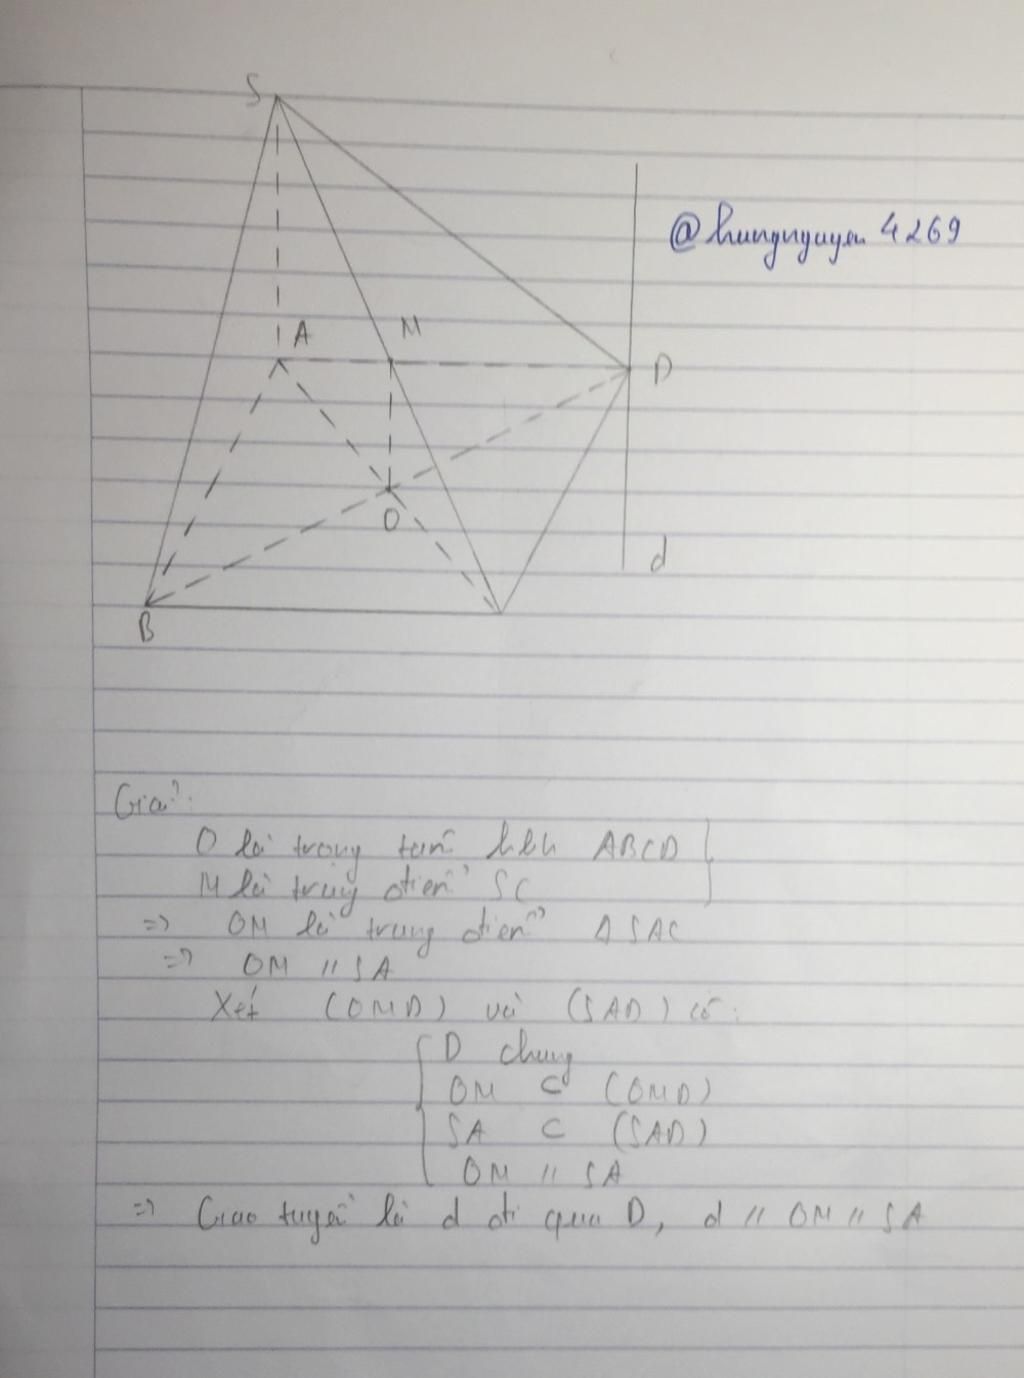 S
@hungnguyen4269
A
M
D
O
d
B
Giải:
O là trọng tâm hbh ABCD
M là trung điểm SC
=> OM là trung điểm Δ SAC
=> OM // SA
Xét (OMD) và (SAD) có:
D chung
OM ⊂ (OMD)
SA ⊂ (SAD)
OM // SA
=> Giao tuyến là d đi qua D, d // OM // SA